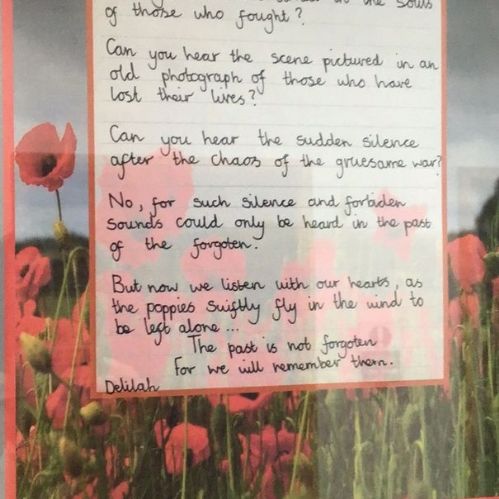 in the souls
of those who fought?
Can you hear the scene pictured in an
old photograph of those who have
lost their lives?
Can you hear the sudden silence
after the chaos of the gruesome war?
No, for such silence and forbiden
sounds could only be heard in the past
of the forgoten.
But now we listen with our hearts, as
the poppies swiftly fly in the wind to
be left alone...
The past is not forgoten
For we will remember them.
Delilah